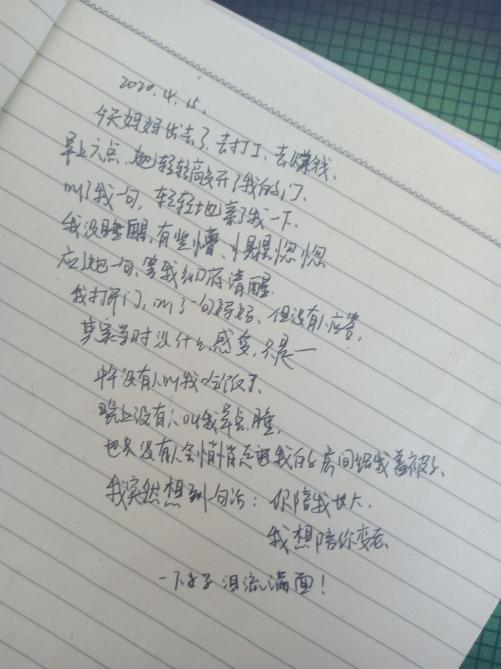 2020.4.15.
今天妈妈出去了、去打工、去赚钱、
早上六点、她轻轻敲开了我的门、
叫了我一句, 轻轻地亲了我一下.
我没睡醒,有些懵、惺惺忪忪
应她一句、等我彻底清醒.
我打开门,叫了一句妈妈、但没有人应答,
其实当时没什么感受,只是一
中午没有人叫我吃饭了.
晚上没有人叫我早点睡,
也只没有人会悄悄走进我的房间给我盖被子、
我突然想到一句话: 你陪我长大.
我想陪你变老.
一下子 泪流满面!